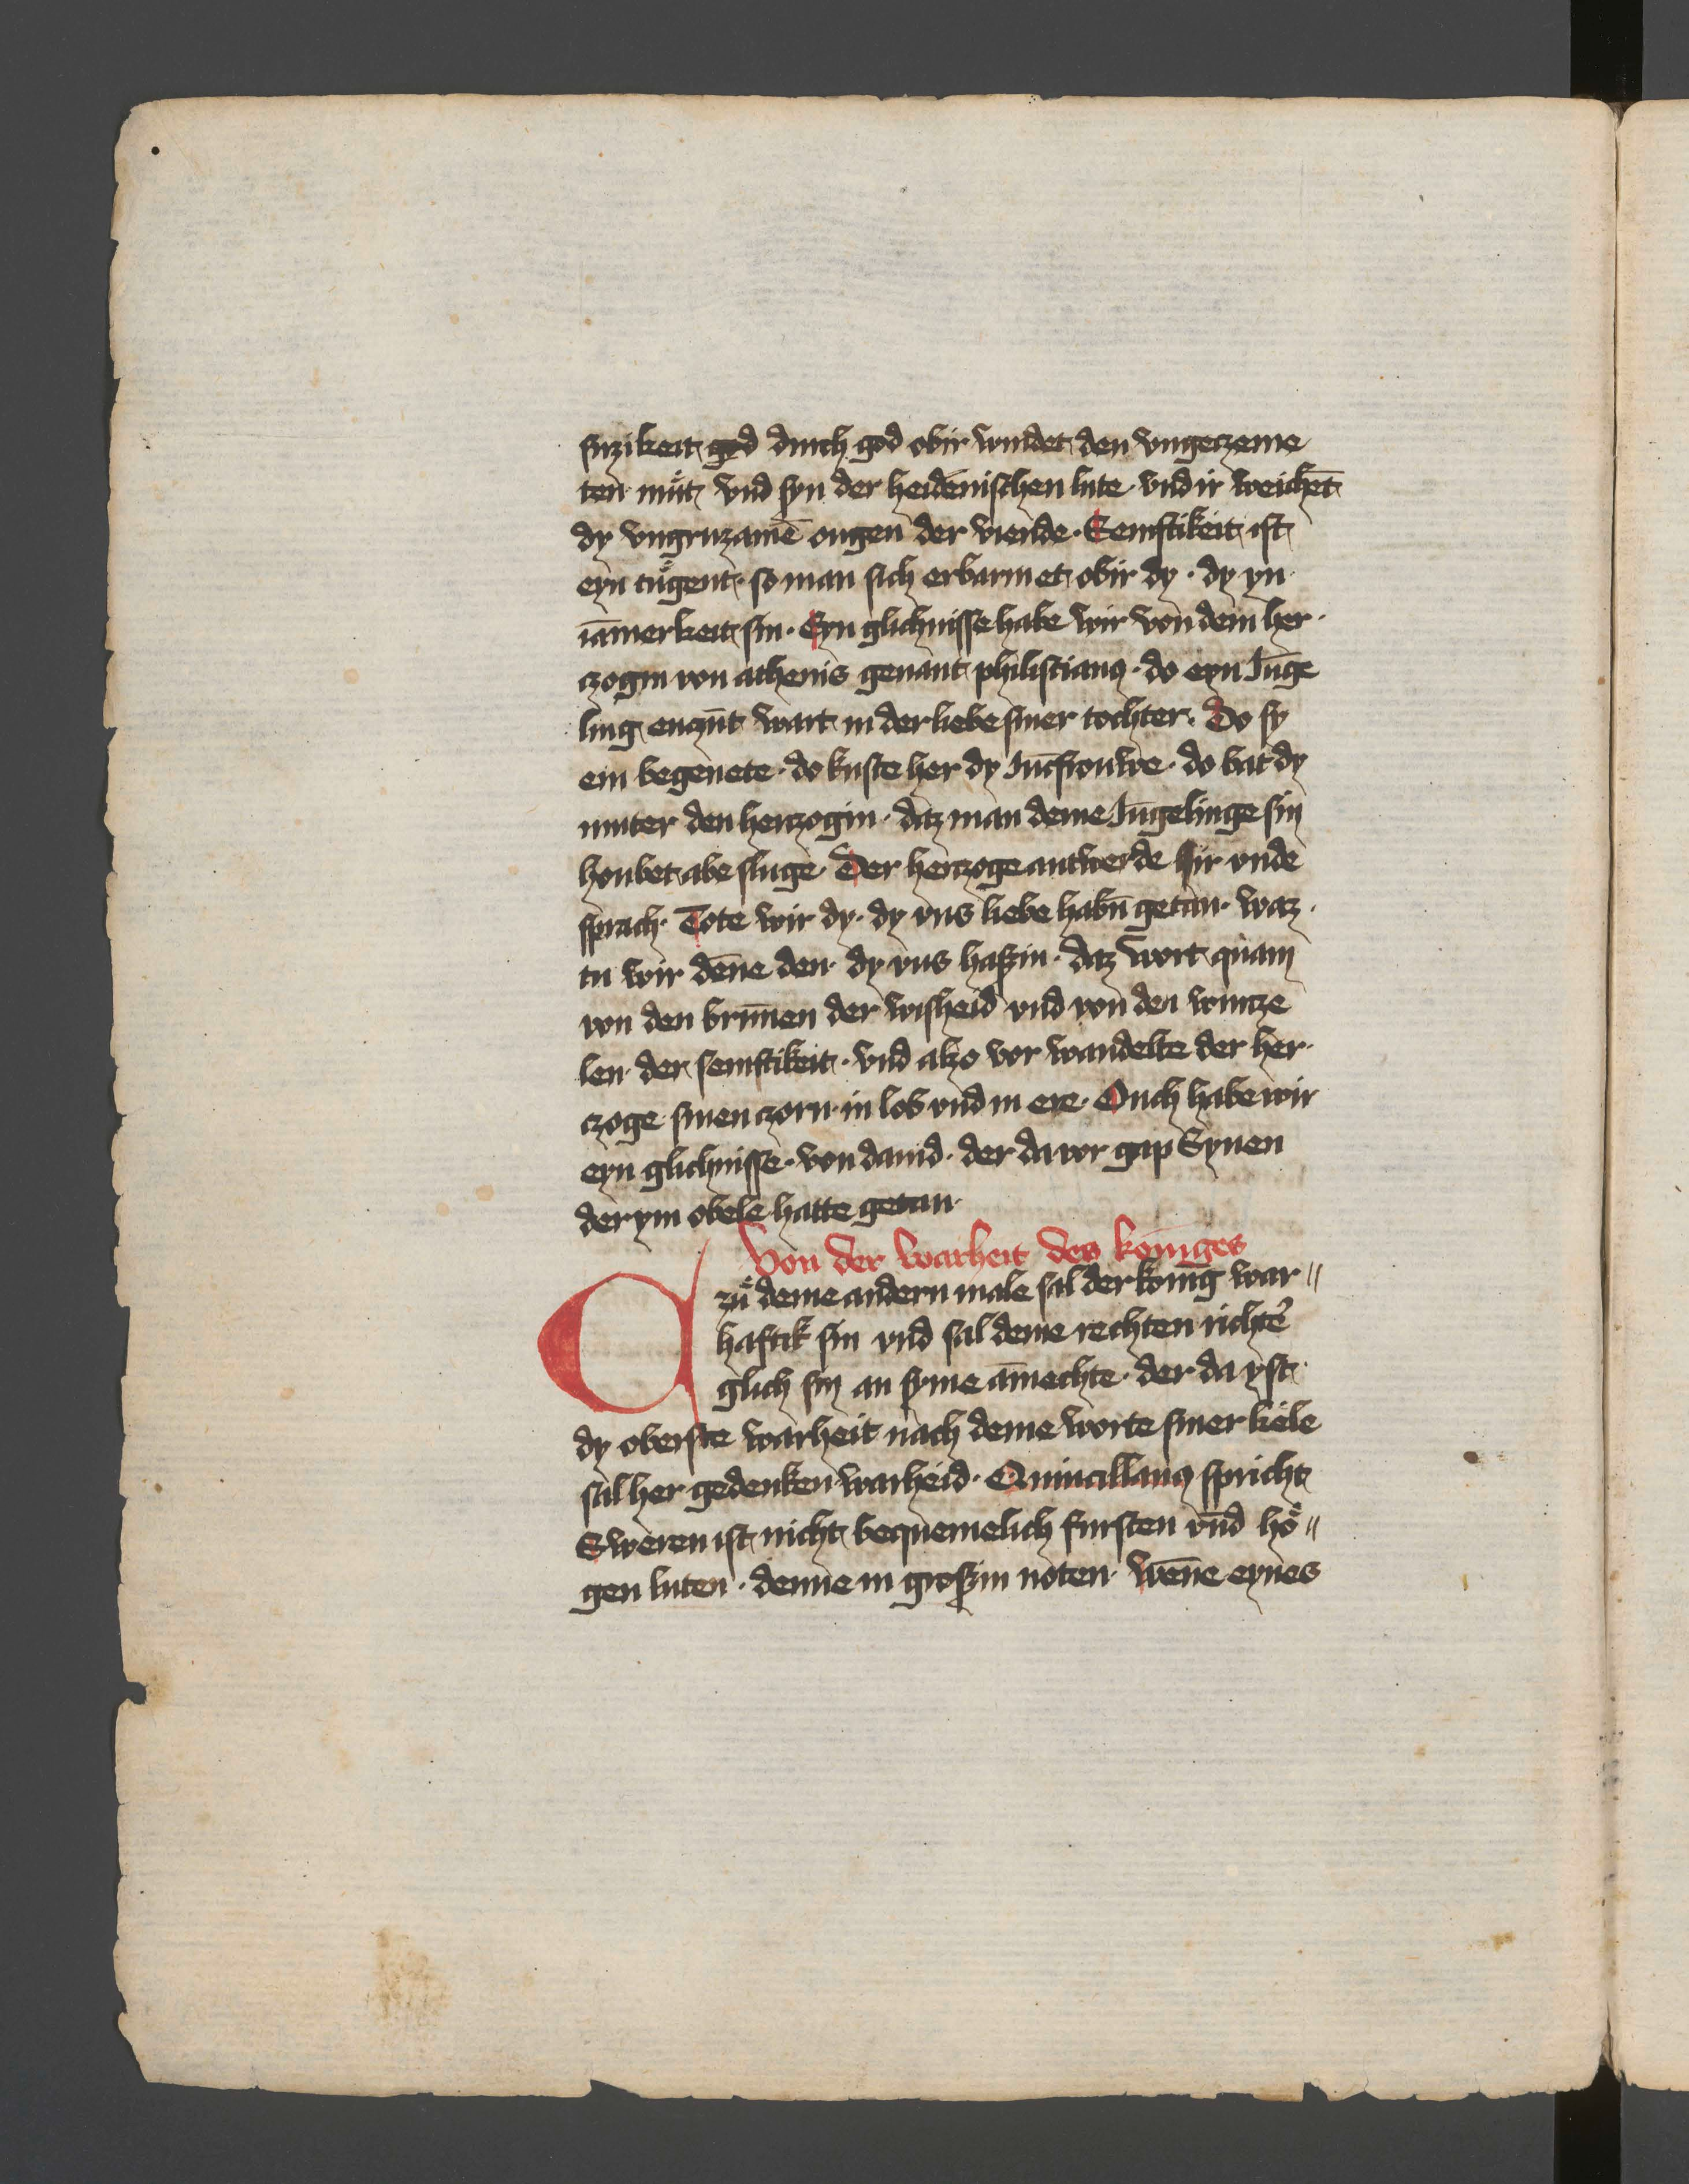 suzikeit god durch god obir windet den vngeczeme
ten mu̇t vnd syn der heidenischen lute vnd ir weichēt
dy vngruzamē ougen der viende · Semftikeit ist
eyn tu̇gent · so man sich erbarmet obir dy · dy yn
iāmerkeit sin · Eyn glichnisse habe wir von dem her
czogin von athenis genant philistianꝯ · do eyn Jūge
ling enczūt wart in der liebe siner tochter · Do sy
em begenete · do kuste her dy Jūcfrouwe · do bat dy
muter den herzogin · daz man deme Jūgelinge sin
houbet abe sluge · Der herczoge antwerde ir vnde
sprach · Tote wir dy · dy vns liebe habn̄ getan · waz
tu wir dēne den · dy vns haßin · daz wort quam
von den brūnen der wisheid vnd von den wurcze
len der semftikeit · vnd alzo vor wandelte der her
czoge sinen czorn in lob vnd in ere · Ouch habe wir
eyn glichnisse · von dauid · der da vor gap Synen
der ym obele hatte getan ·
Von der warheit des koniges
zu̇ deme andern male sal der konīg war〃
haftik sin vnd sal deme rechten richtē
glich sin an syme āmechte · der da yst
dy oberste warheit nach deme worte siner kele
sal her gedenken warheid · Quincillanꝯ spricht
Sweren ist nicht bequemelich fursten vnd ho̊〃
gen luten · denne in großin noten · wēne eynes